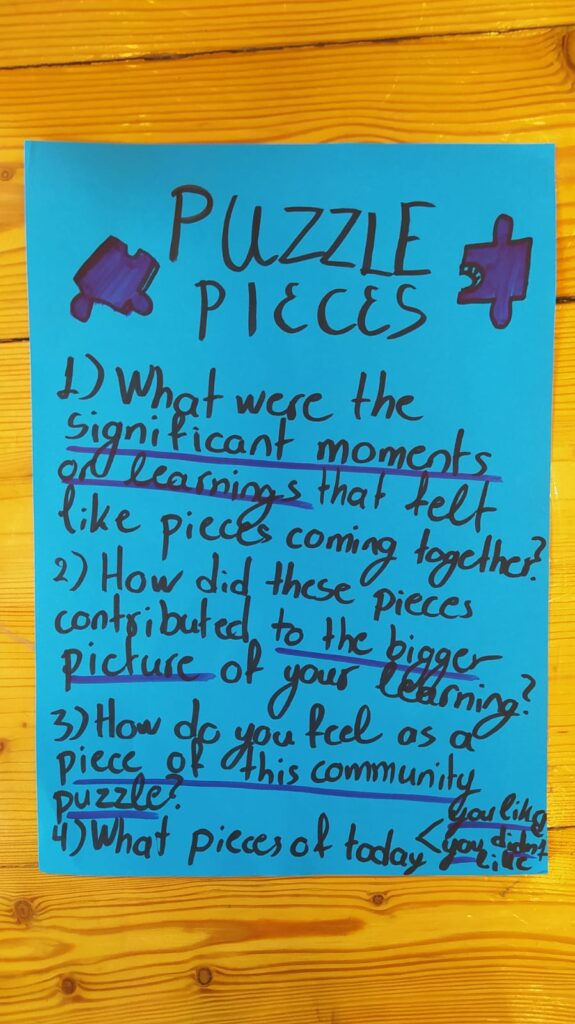 PUZZLE
PIECES
1) What were the
significant moments
or learnings that felt
like pieces coming together?
2) How did these pieces
contributed to the bigger
picture of your learning?
3) How do you feel as a
piece of this community
puzzle?
4) What pieces of today < you like
you didn't
like